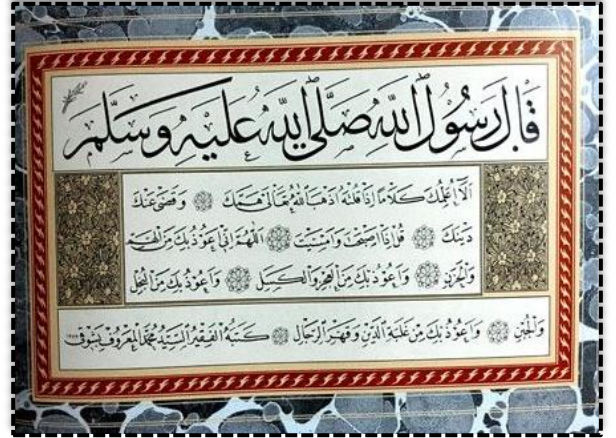 قَالَ رَسُولُ اللهِ صَلَّى اللهُ عَلَيْهِ وَسَلَّمَ
أَلَا أُعَلِّمُكَ كَلَامًا إِذَا قُلْتَهُ أَذْهَبَ اللهُ تَعَالَى هَمَّكَ وَقَضَى عَنْكَ
دَيْنَكَ قُلْ إِذَا أَصْبَحْتَ وَأَمْسَيْتَ اَللّٰهُمَّ إِنِّي أَعُوذُ بِكَ مِنَ الْهَمِّ
وَالْحَزَنِ وَأَعُوذُ بِكَ مِنَ الْعَجْزِ وَالْكَسَلِ وَأَعُوذُ بِكَ مِنَ الْبُخْلِ
وَالْجُبْنِ وَأَعُوذُ بِكَ مِنْ غَلَبَةِ الدَّيْنِ وَقَهْرِ الرِّجَالِ كَتَبَهُ الْفَقِيرُ السَّيِّدُ مُحَمَّدُ الْمَعْرُوفُ بِشَوْقِي